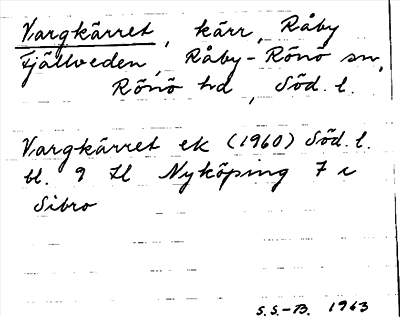 Vargkärret, kärr, Råby
Fjällveden, Råby-Rönö sn,
Rönö hd, Söd. l.
Vargkärret ek (1960) Söd. l.
bl. 9 Nyköping 7 c
Sibro
S.S.-B. 1963